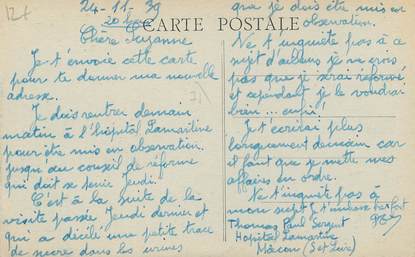 12f
24-11-39
20 heures
CARTE POSTALE
Chère Suzanne
Je t'envoie cette carte
pour te donner ma nouvelle
adresse.
Je dois rentrer demain
matin à l'hôpital Lamartine
pour être mis en observation.
jusqu'au conseil de réforme
qui doit se tenir Jeudi.
C'est à la suite de la
visite passée Jeudi dernier et
qui a décelé une petite trace
de sucre dans les urines
que je dois être mis en
observation.
Ne t'inquiète pas à ce
sujet d'ailleurs je ne crois
pas que je serai réformé
et cependant je le voudrai
bien ... enfin!
Je t'écrirai plus
longuement demain car
il faut que je mette mes
affaires en ordre.
Ne t'inquiète pas à
mon sujet Je t'embrasse fort
Thomas Paul Sergent
Hopital Lamartine
Mâcon (S et Loire)